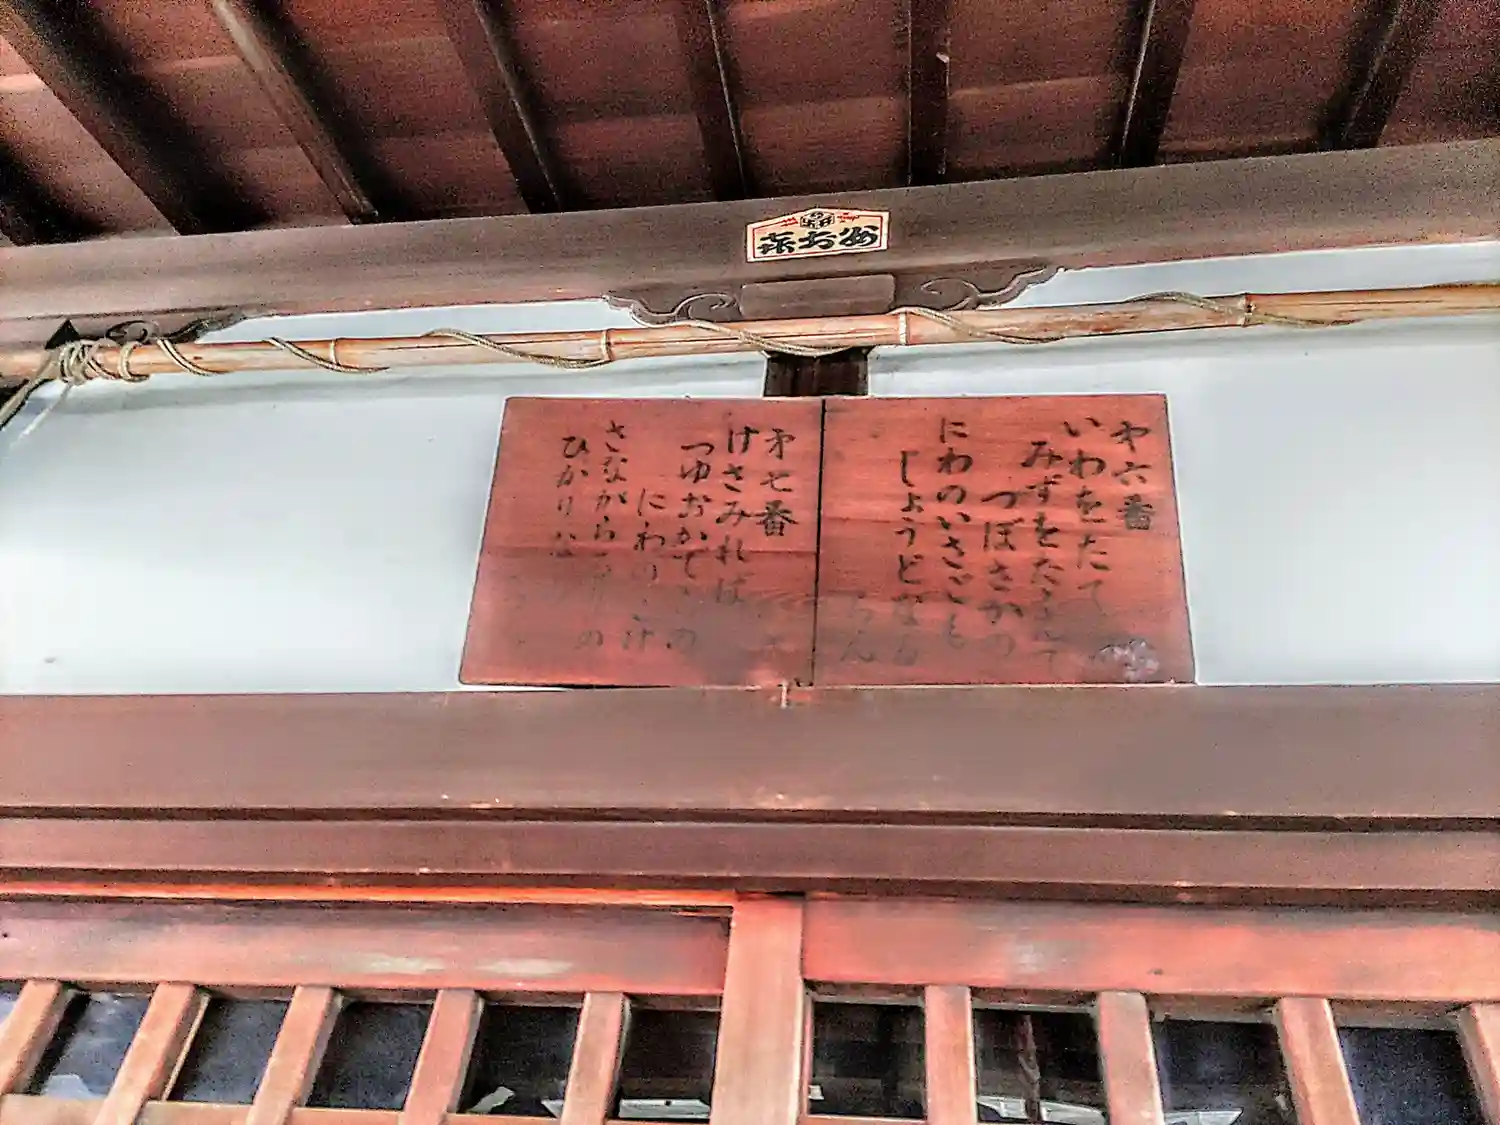 第六番
いわをたて
みずをたたえて
つぼさかの
にわのいさごも
じょうどなる
らん
第七番
けさみれば
つゆおかでらの
にわの
さながら
ひかり